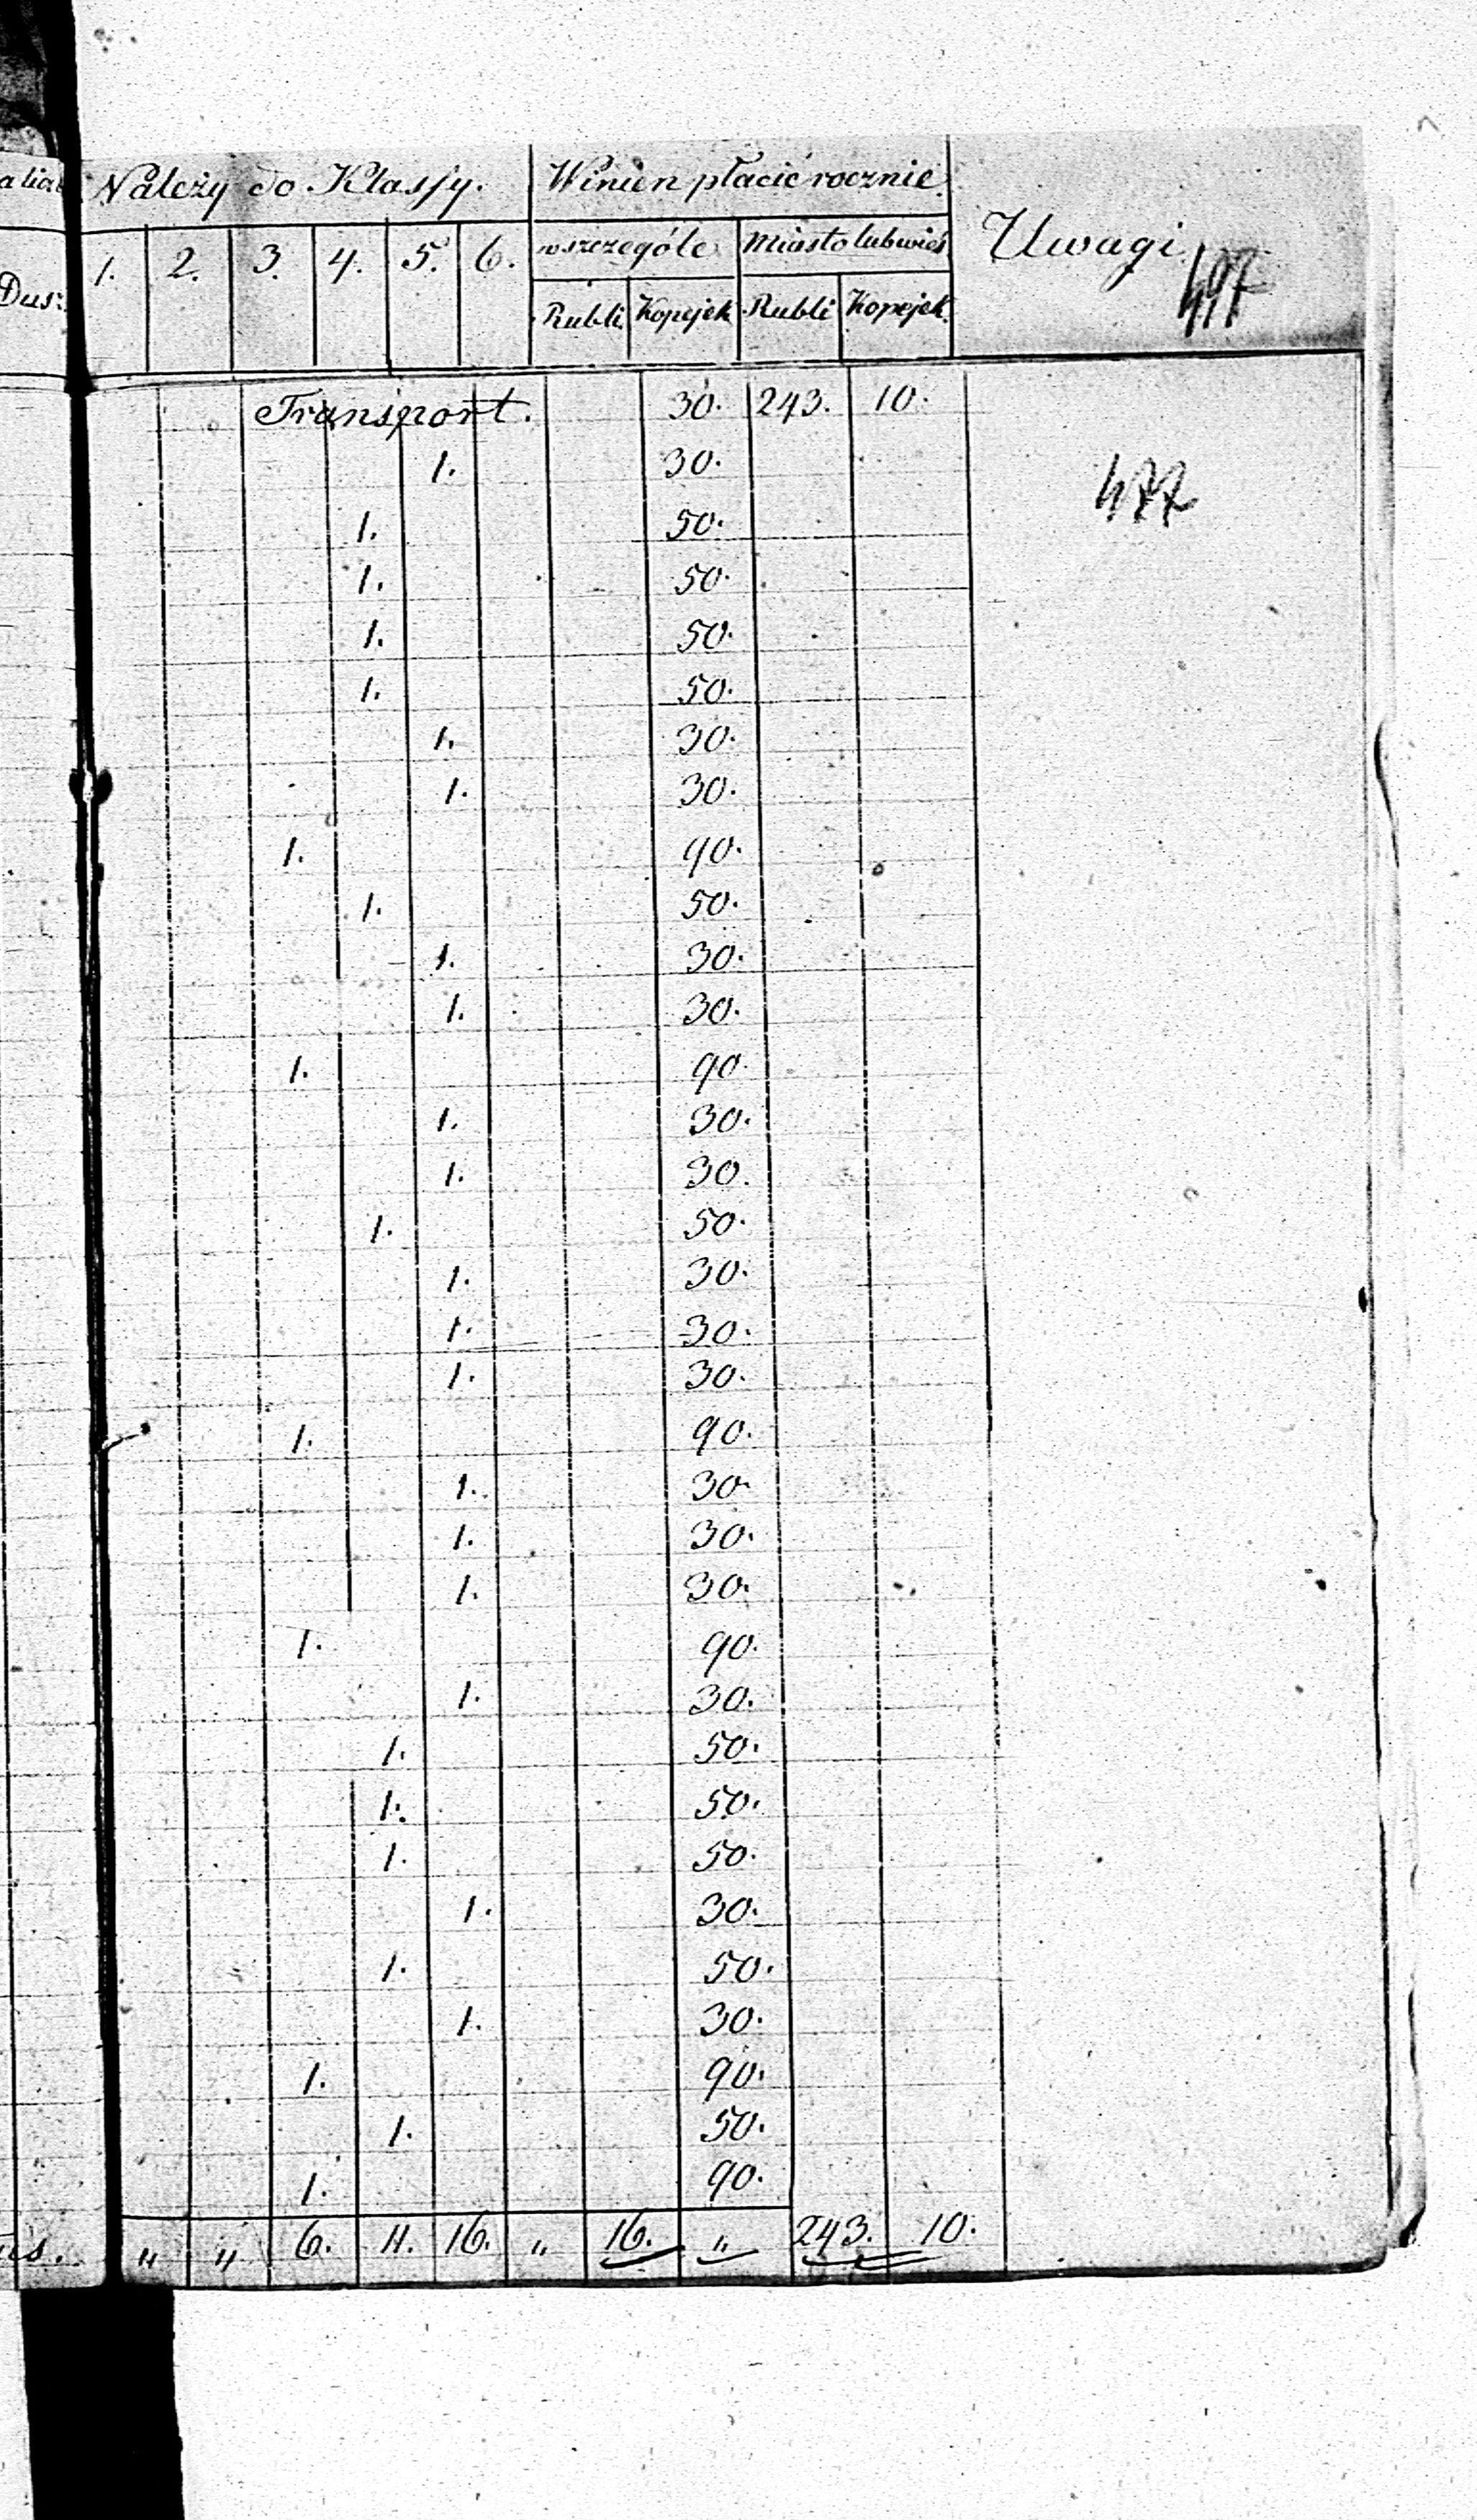 Należy do Klassy. Winien płacić rocznie Uwagi
1. 2. 3. 4. 5. 6. wszczególe Miasto lub wieś
Dus:
Rubli Kopejek Rubli Kopejek
Transport. 30. 243. 10.
1. 30.
477
1. 50.
1. 50.
1. 50.
1. 50.
1. 30.
1. 30.
1. 90.
1. 50.
1. 30.
1. 30.
1. 90.
1. 30.
1. 30.
1. 50.
1. 30.
1. 30.
1. 30.
1. 90.
1. 30.
1. 30.
1. 30.
1. 90.
1. 30.
1. 50.
1. 50.
1. 50.
1. 30.
1. 50.
1. 30.
1. 90.
1. 50.
1. 90.
" " 6. 11. 16. " 16. " 243. 10.